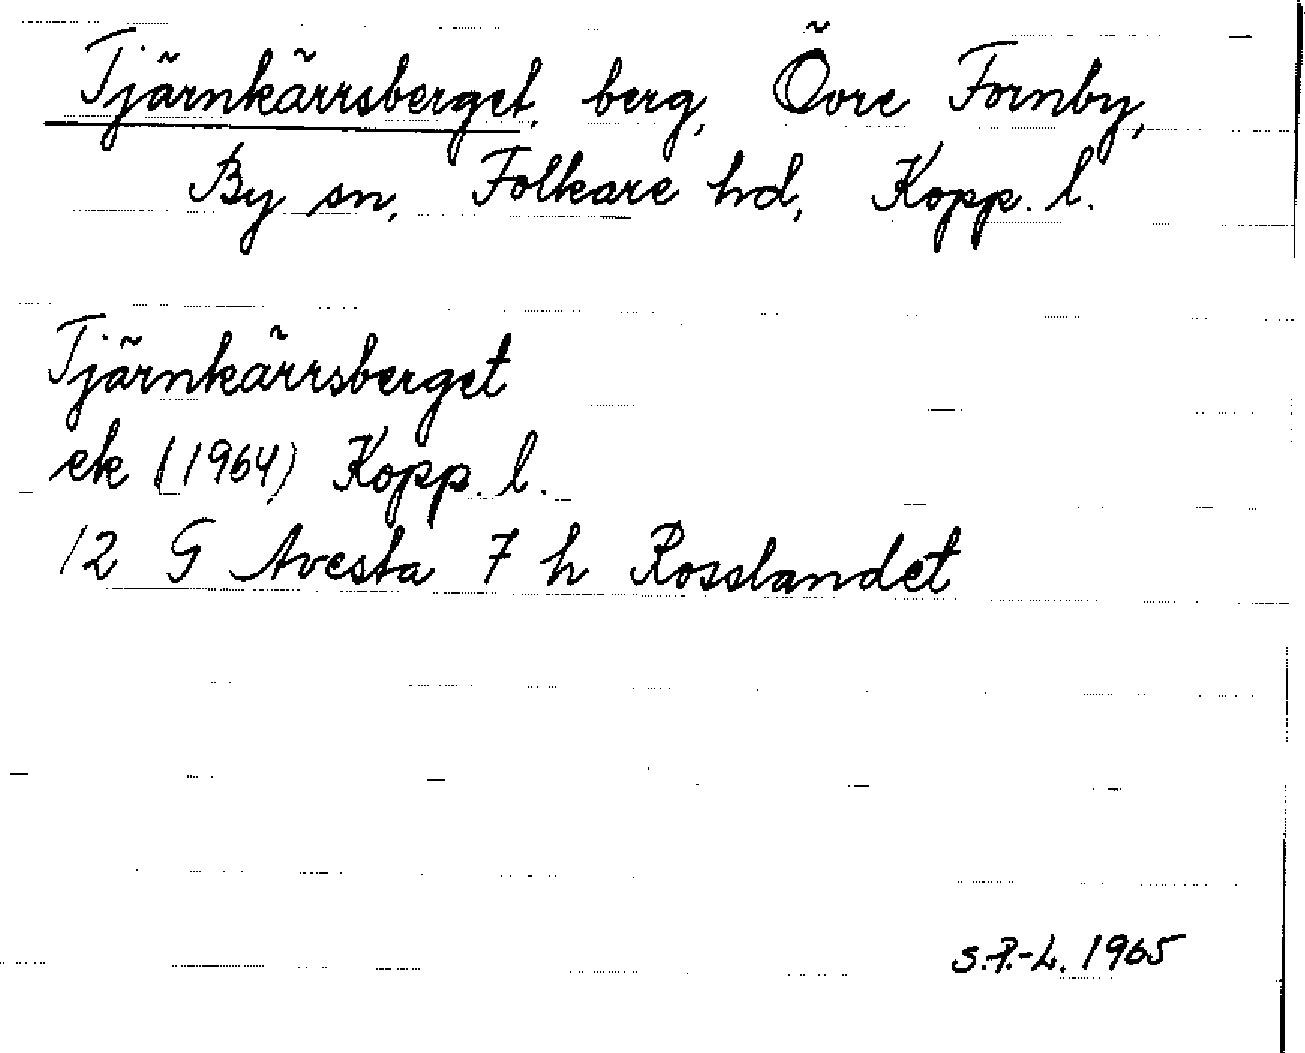 Tjärnkärrsberget, berg, Övre Fornby,
By sn, Folkare hd, Kopp. l.
Tjärnkärrsberget
ek (1964) Kopp. l.
12 G Avesta 7 h Rosslandet
S.P.-L. 1965